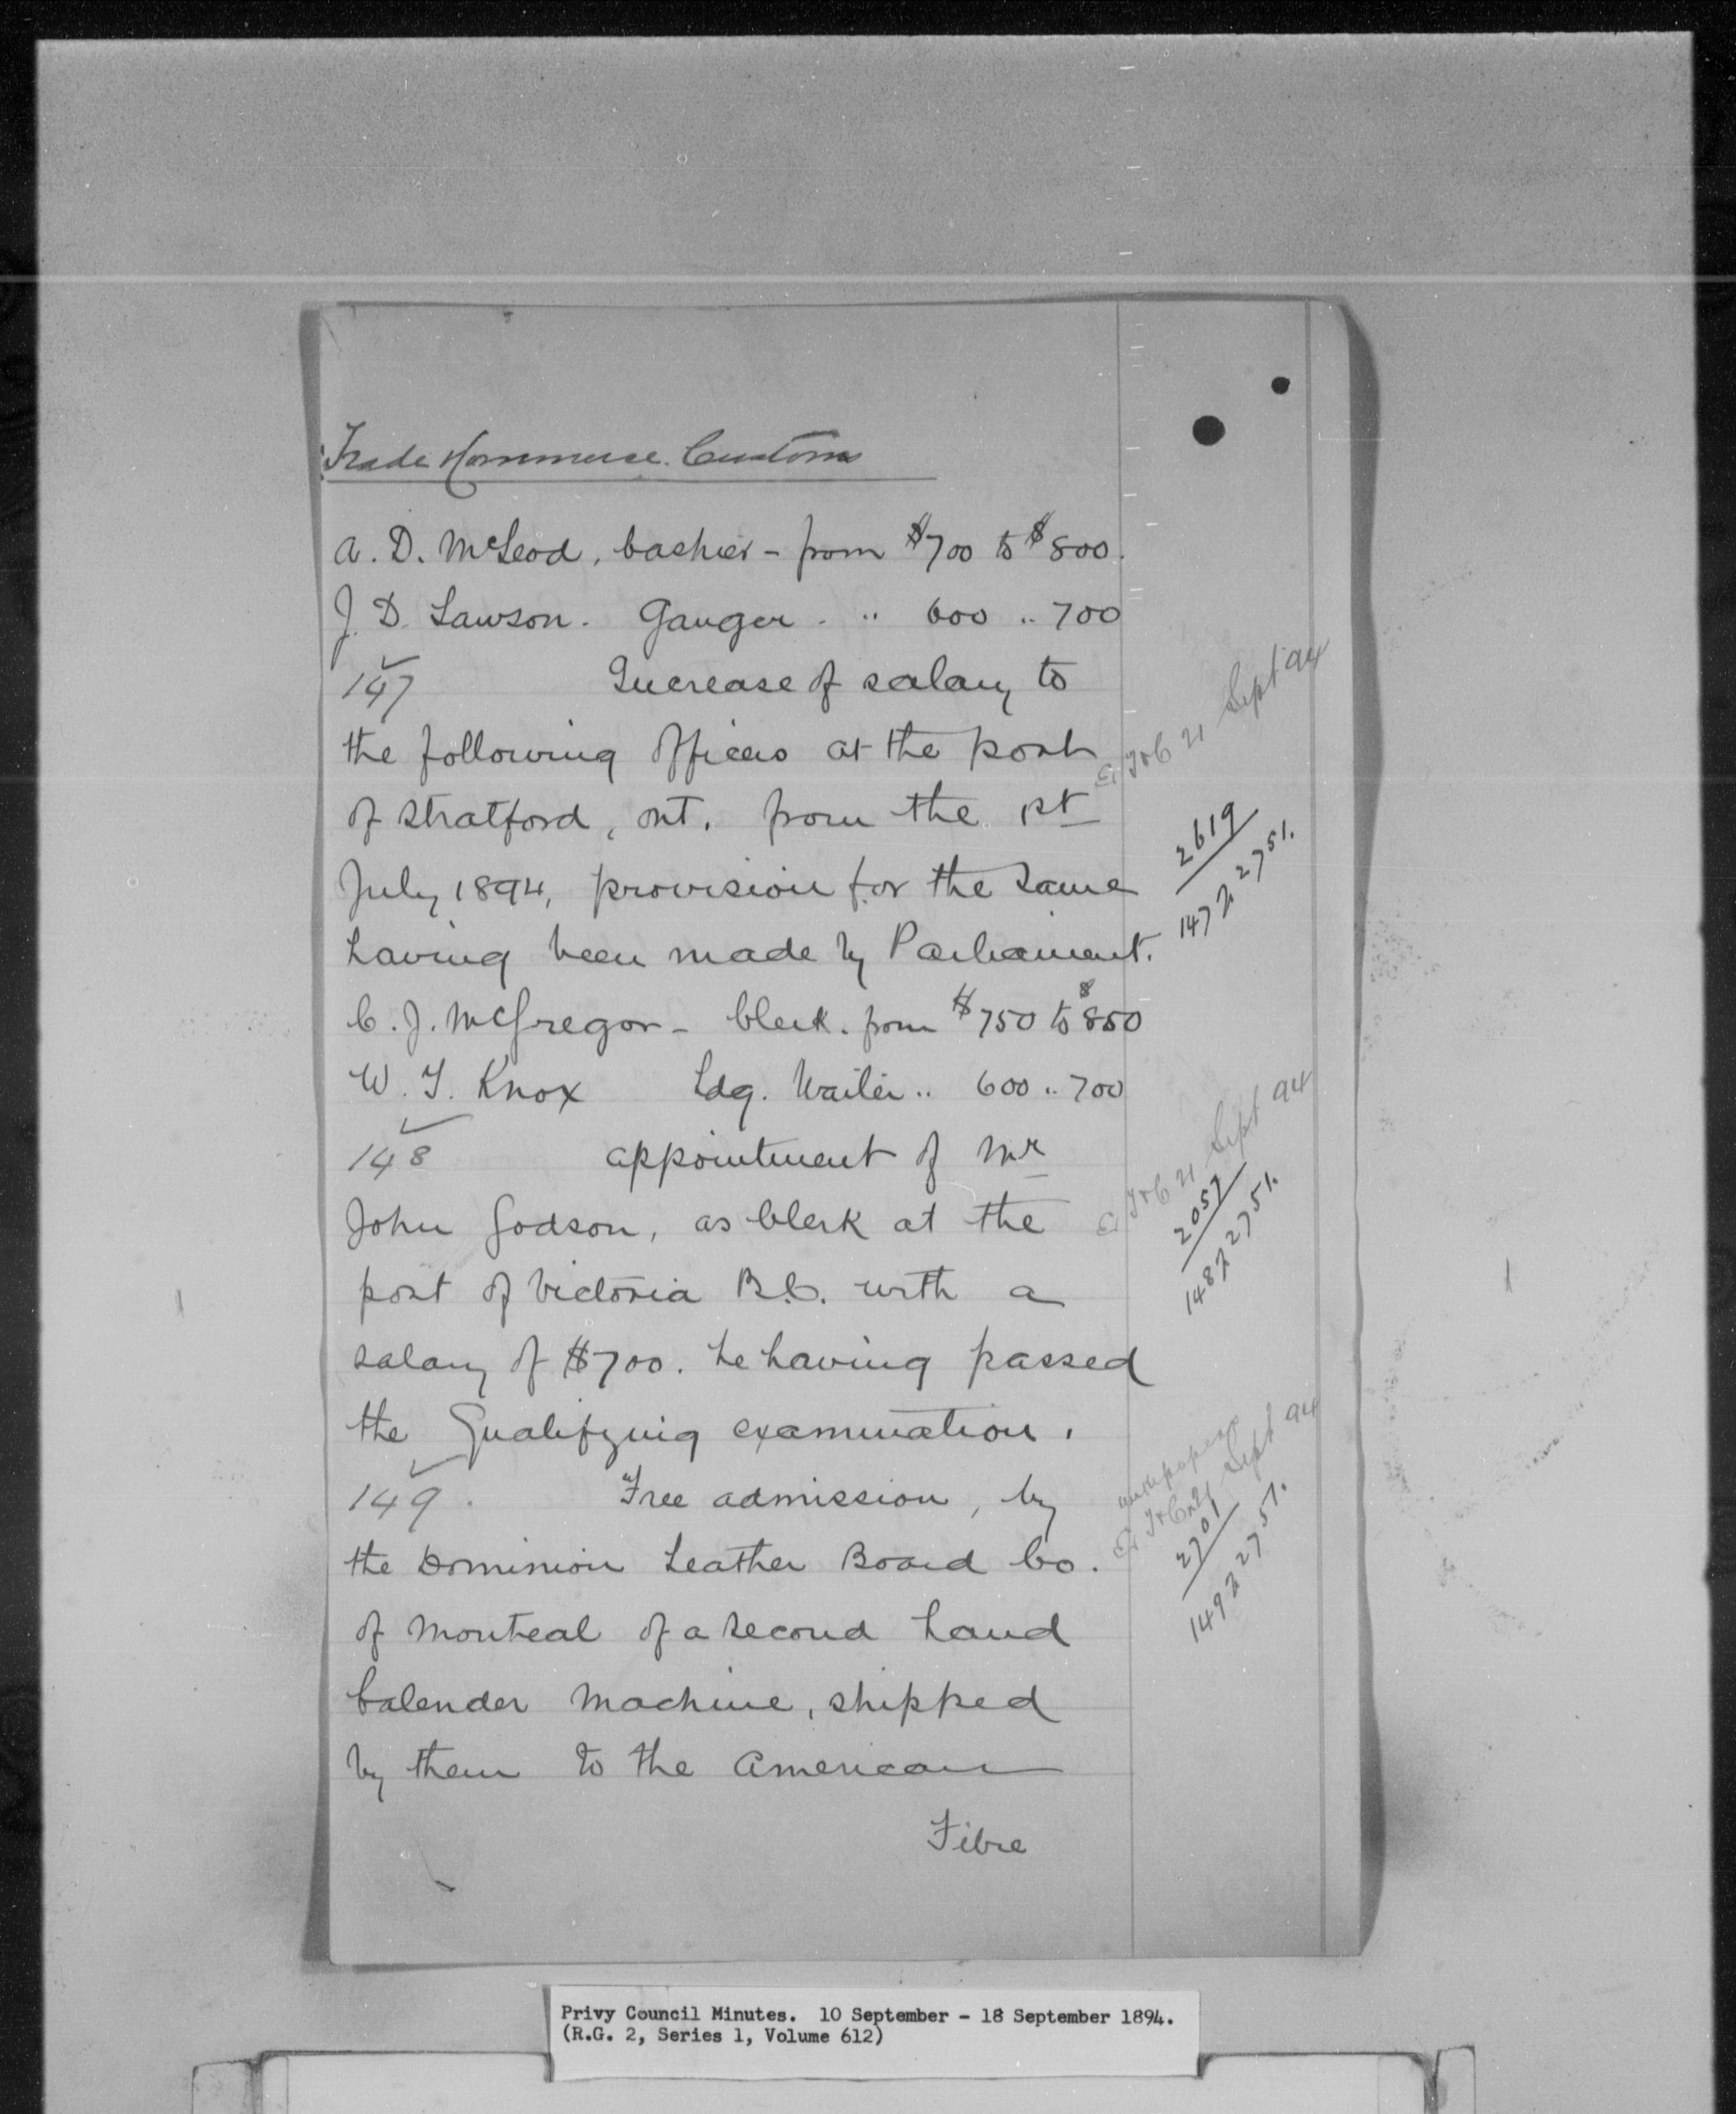 Trade & Commerce. Customs
A. D. McLeod, Cashier - from $700 to $800.
J. D. Lawson. Gauger. " 600 " 700
147 Increase of salary to
the following Officers at the port
of Stratford, Ont. from the 1st
July 1894, provision for the same
having been made by Parliament.
C. J. McGregor - Clerk. from $750 to $850
W. T. Knox Ldg. Waiter " 600 " 700
148 Appointment of Mr
John Godson, as Clerk at the
port of Victoria B.C. with a
salary of $700. he having passed
the Qualifying examination.
149. Free admission, by
the Dominion Leather Board Co.
of Montreal of a second hand
Calender Machine, shipped
by them to the American
Fibre
T&C 21 Sept 94
2619
147 2751.
T&C 21 Sept 94
2057
148 2751.
T&C 21 Sept 94
2701
149 2751.
Privy Council Minutes. 10 September - 18 September 1894.
(R.G. 2, Series 1, Volume 612)